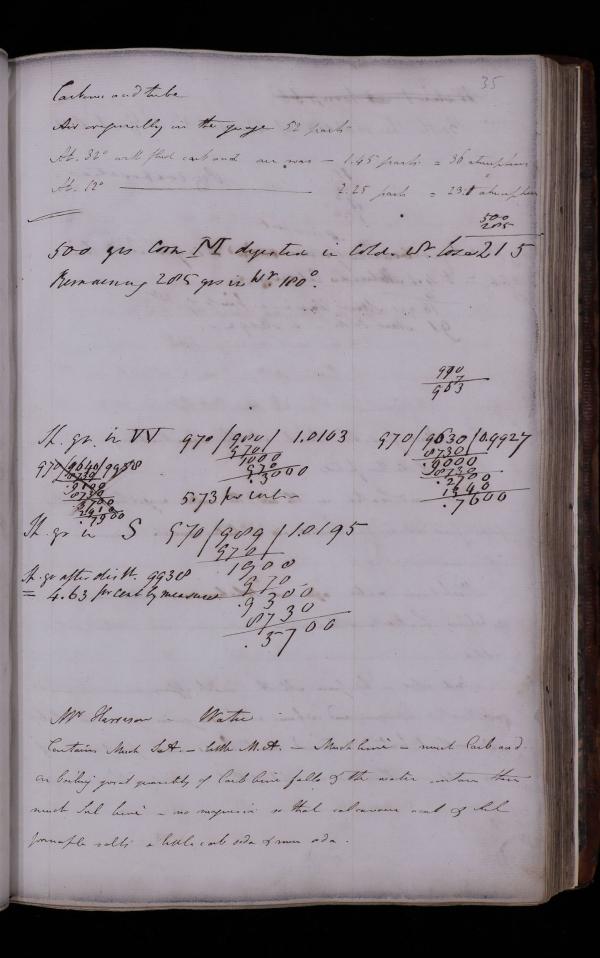 35
Carbonic acid tube
Air originally in the gauge 52 parts
At. 32° with fluid carb acid air was - 1.45 parts = 36 atmospheres
At. 12° ———— 2.25 parts = 23.1 atmospheres
500
285
500 grs Corn M digested in Cold. Wr. lose 215
Remaining 285 grs in Wr 180°.
970
7
963
Sp. gr. in W 970/980/ 1.0103
970
1000
970
.3000
5.73 per cent
970/9630/0.9927
8730
.9000
8730
.2700
1940
.7600
970/9640/9938
8730
.9100
8730
.3700
2910
.7900
Sp. gr in S. 970/989/1.0195
970
1900
970
.9300
8730
.5700
Sp. gr after distn. 9938
= 4.63 per cent by measure
Mr Harrison Water
Contains Much S.A. - little M.A. - Much lime - much Carb acid
on boiling great quantity of Carb lime falls & the water contains then
much Sul lime - no magnesia so that
salts a little carb soda & mur soda.